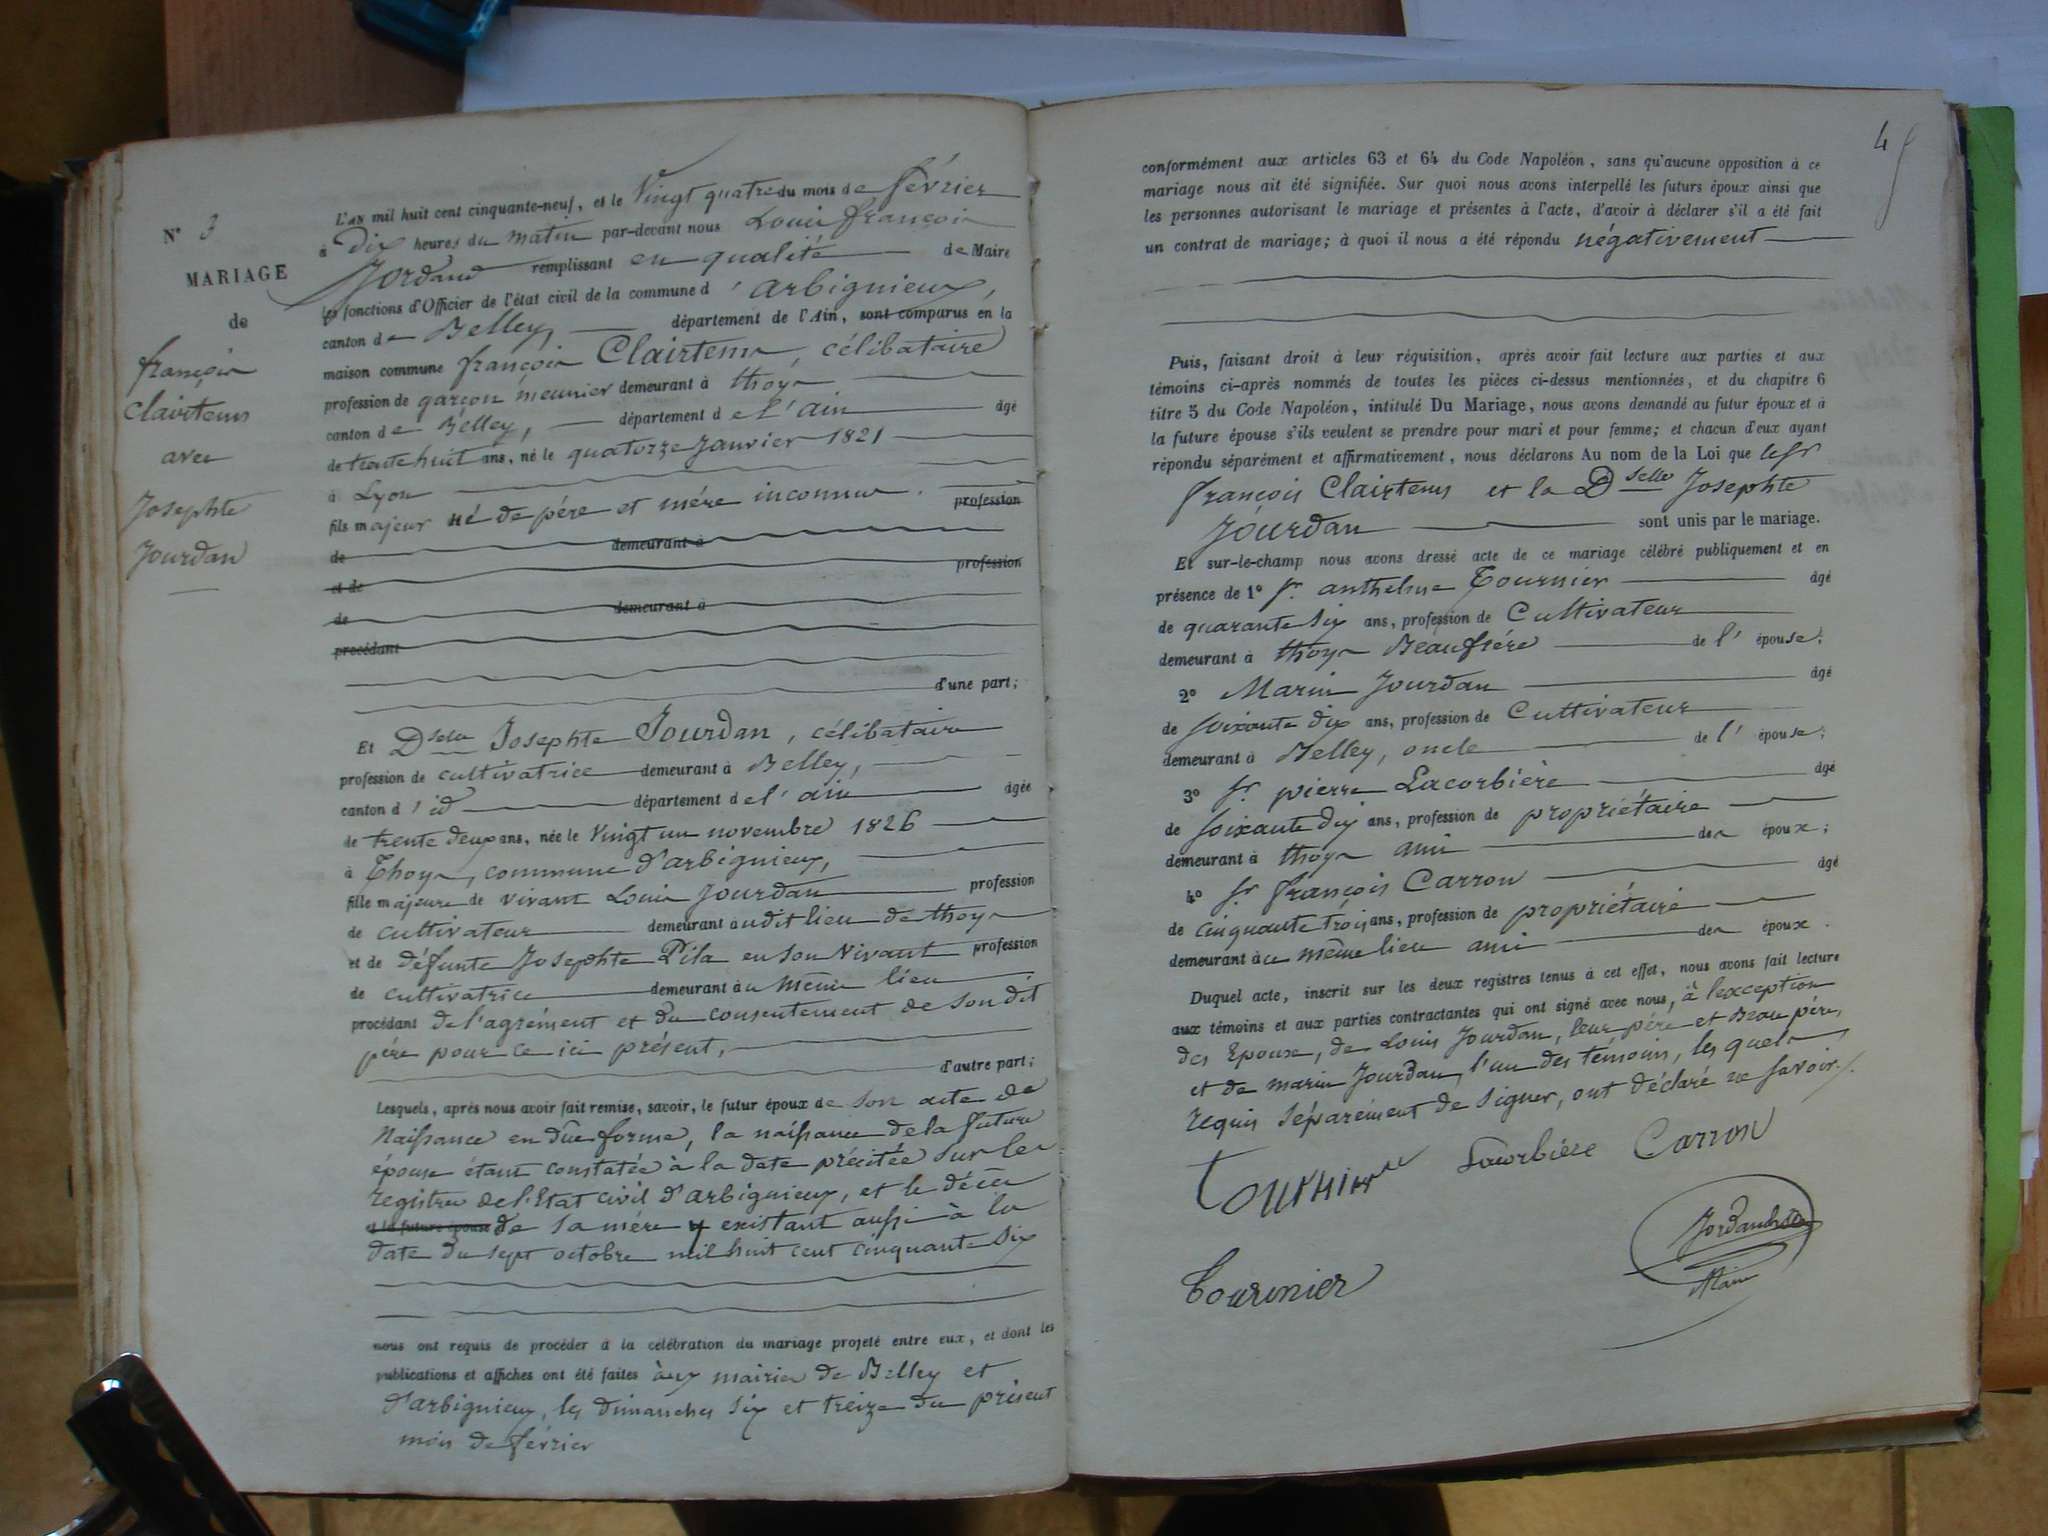 N° 3
MARIAGE
de
françois
Clairtems
avec
Josephte
Jourdan
L'AN mil huit cent cinquante-neuf, et le Vingt quatre du mois de février
à Dix heures du matin par-devant nous Louis françois
Jordand remplissant en qualité de Maire
les fonctions d'Officier de l'état civil de la commune d'arbignieux,
canton de Belley, département de l'Ain, sont comparus en la
maison commune françois Clairtems, célibataire
profession de garçon meunier demeurant à thoys
canton de Belley, département de l'ain âgé
de trente huit ans, né le quatorze Janvier 1821
à Lyon
fils majeur né de père et mère inconnus. profession
de demeurant à
et de profession
de demeurant à
procédant
d'une part;
Et Dselle Josephte Jourdan, célibataire
profession de cultivatrice demeurant à Belley,
canton d'id département de l'ain âgée
de trente deux ans, née le Vingt un novembre 1826
à Thoys, commune d'arbignieux,
fille majeure de vivant Louis Jourdan profession
de cultivateur demeurant audit lieu de thoys
et de défunte Josephte Pila en son vivant profession
de cultivatrice demeurant au même lieu
procédant de l'agrément et du consentement de son dit
père pour ce ici présent,
d'autre part;
Lesquels, après nous avoir fait remise, savoir, le futur époux de son acte de
Naissance en dûe forme, la naissance de la future
épouse étant constatée à la date précitée sur les
registres de l'Etat civil d'arbignieux, et le décès
et la future épouse de sa mère y existant aussi à la
date du sept octobre mil huit cent cinquante six
nous ont requis de procéder à la célébration du mariage projeté entre eux, et dont les
publications et affiches ont été faites aux mairies de Belley et
d'arbignieux, les dimanches six et treize du présent
mois de février
conformément aux articles 63 et 64 du Code Napoléon, sans qu'aucune opposition à ce
mariage nous ait été signifiée. Sur quoi nous avons interpellé les futurs époux ainsi que
les personnes autorisant le mariage et présentes à l'acte, d'avoir à déclarer s'il a été fait
un contrat de mariage; à quoi il nous a été répondu négativement
Puis, faisant droit à leur réquisition, après avoir fait lecture aux parties et aux
témoins ci-après nommés de toutes les pièces ci-dessus mentionnées, et du chapitre 6
titre 5 du Code Napoléon, intitulé Du Mariage, nous avons demandé au futur époux et à
la future épouse s'ils veulent se prendre pour mari et pour femme; et chacun d'eux ayant
répondu séparément et affirmativement, nous déclarons Au nom de la Loi que le Sr
françois Clairtems et la Dselle Josephte
Jourdan sont unis par le mariage.
Et sur-le-champ nous avons dressé acte de ce mariage célébré publiquement et en
présence de 1° Sr. anthelme Tournier âgé
de quarante six ans, profession de Cultivateur
demeurant à thoys Beaufrère de l'épouse;
2° Marin Jourdan âgé
de soixante dix ans, profession de Cultivateur
demeurant à Belley, oncle de l'épouse;
3° Sr. pierre Lacorbière âgé
de soixante dix ans, profession de propriétaire
demeurant à thoys ami des époux;
4° Sr. françois Carron âgé
de cinquante trois ans, profession de propriétaire
demeurant à ce même lieu ami des époux.
Duquel acte, inscrit sur les deux registres tenus à cet effet, nous avons fait lecture
aux témoins et aux parties contractantes qui ont signé avec nous, à l'exception
des Epoux, de Louis Jourdan, leur père et Beau père,
et de marin Jourdan, l'un des témoins, les quels
requis séparément de signer, ont déclaré ne savoir./.
Tournier Lacorbière Carron
Tournier
Maire